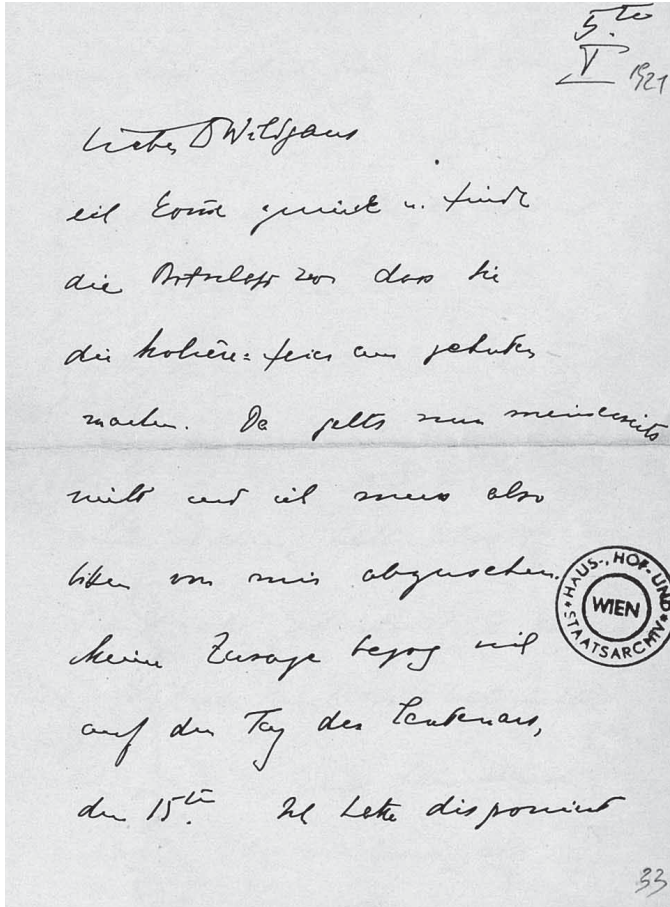 5.ten
I 1921
Lieber D Wildgans
ich komme zurück u. finde
die Botschaft vor dass Sie
die Molière-feier am zehnten
machen. Da gehts nun meinerseits
nicht und ich muss also
bitten von mir abzusehen.
Meine Zusage bezog sich
auf den Tag des Centenars,
den 15ten. Ich hatte disponiert
HAUS-, HOF- UND STAATSARCHIV
WIEN
33